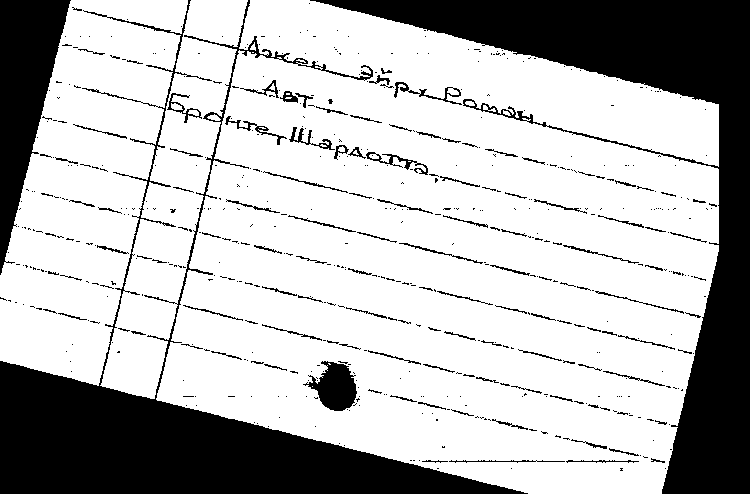 Джен Эйр, Роман.
Авт:
Бронте, Шарлотта.